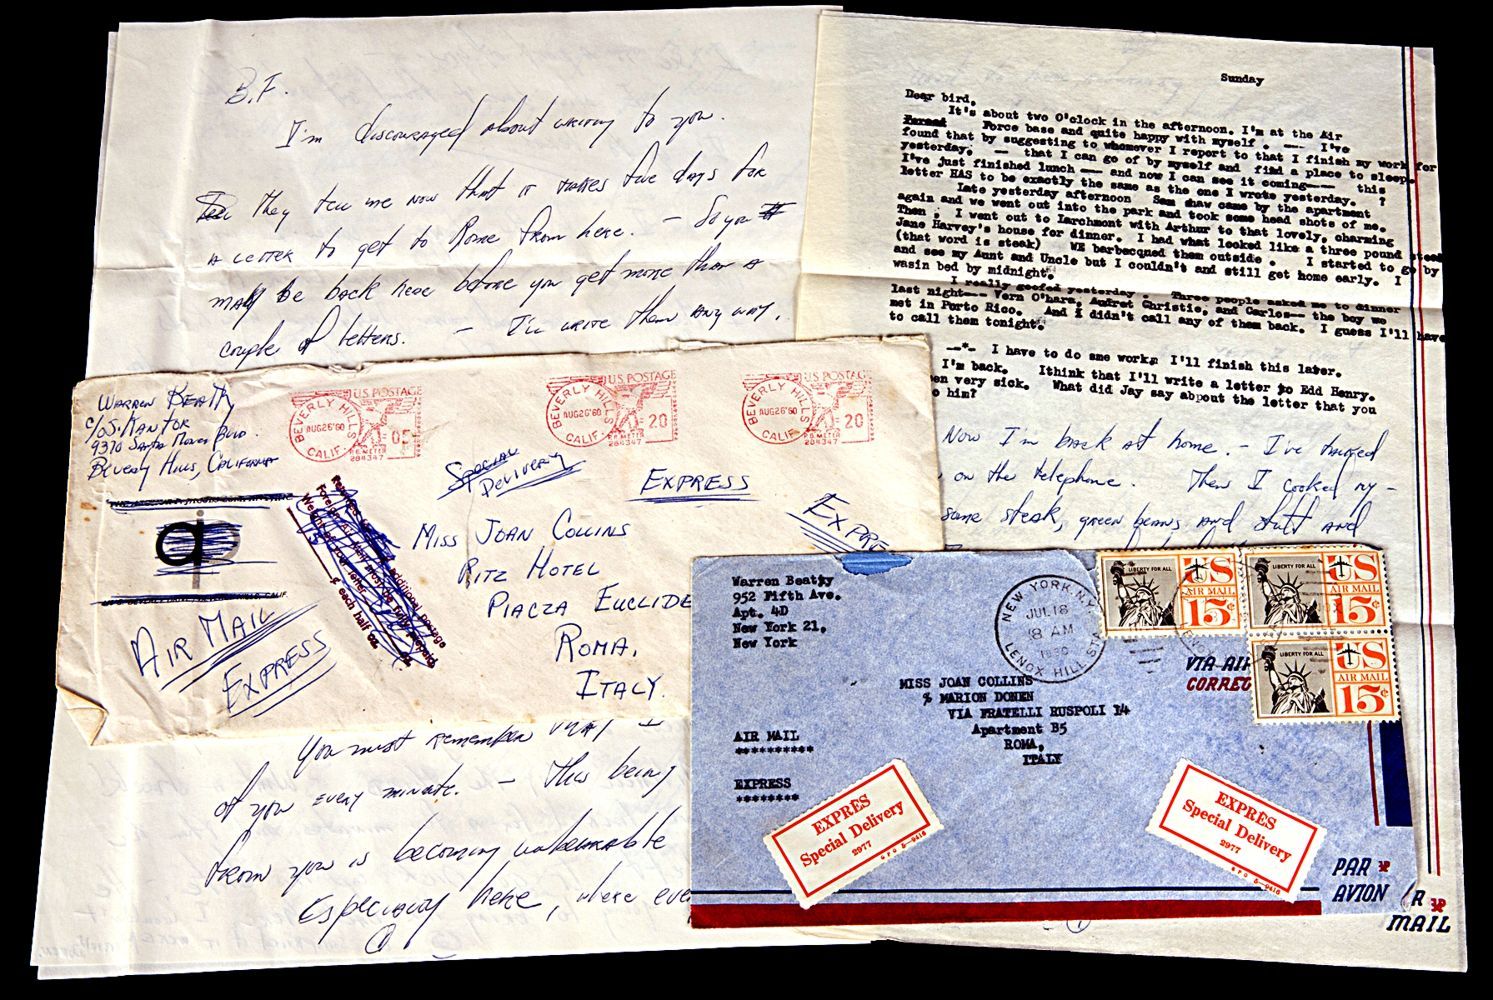 B.F.
I'm discouraged about writing to you.
they tell me now that it takes five days for
a letter to get to Rome from here. - So you
may be back here before you get more than a
couple of letters. - I'll write them any way.
Sunday
Dear bird,
It's about two O'clock in the afternoon. I'm at the Air
Force base and quite happy with myself . -- I've
found that by suggesting to whomever I report to that I finish my work for
yesterday. -- that I can go of by myself and find a place to sleep.
I've just finished lunch -- and now I can see it coming--- this
letter HAS to be exactly the same as the one I wrote yesterday. ?
Late yesterday afternoon Sam shaw came by the apartment
again and we went out into the park and took some head shots of me.
Then , I went out to Larchmont with Arthur to that lovely, charming
Jane Harvey's house for dinner. I had what looked like a three pound steak
(that word is steak) WE barbecqued them outside . I started to go by
and see my Aunt and Uncle but I couldn't and still get home early. I
wasin bed by midnight.
I really goofed yesterday -- Three people asked me to dinner
last night--- Vern O'hara, Audret Christie, and Carlos-- the boy we
met in Porto Rico. And i didn't call any of them back. I guess I'll have
to call them tonight.
--*- I have to do sme work; I'll finish this later.
I'm back. Ithink that I'll write a letter to Edd Henry.
en very sick. What did Jay say about the letter that you
o him?
Now I'm back at home - I've talked
on the telephone. Then I cooked my-
some steak, green beans and stuff and
WARREN BEATTY
c/o S. KANTOR
9370 Santa Monica Blvd.
Beverly Hills, California
U.S. POSTAGE
BEVERLY HILLS CALIF.
AUG26'60
05
P.B. METER
284347
U.S. POSTAGE
BEVERLY HILLS CALIF.
AUG26'60
20
P.B. METER
284347
U.S. POSTAGE
BEVERLY HILLS CALIF.
AUG26'60
20
P.B. METER
284347
SPECIAL
DELIVERY
EXPRESS
EXPRE
MISS JOAN COLLINS
RITZ HOTEL
PIAZZA EUCLIDE
ROMA,
ITALY.
AIR MAIL
EXPRESS
additional postage
Foreign Air Mail must be fully prepaid
Weight of your letter
¢ each half oz.
You must remember that I
of you every minute. - This being
from you is becoming unbearable
Especially here, where eve
1
Warren Beatty
952 Fifth Ave.
Apt. 4D
New York 21,
New York
NEW YORK, N.Y.
JUL 18
8 AM
1960
LENOX HILL STA
LIBERTY FOR ALL
US
AIR MAIL
15¢
LIBERTY FOR ALL
US
AIR MAIL
15¢
LIBERTY FOR ALL
US
AIR MAIL
15¢
VIA AIR
CORREO
MISS JOAN COLLINS
% MARION DONEN
VIA FRATELLI RUSPOLI 14
Apartment B5
ROMA,
ITALY
AIR MAIL
**********
EXPRESS
********
EXPRÈS
Special Delivery
2977
GPO 5-0416
EXPRÈS
Special Delivery
2977
GPO 5-0416
PAR
AVION
R
MAIL